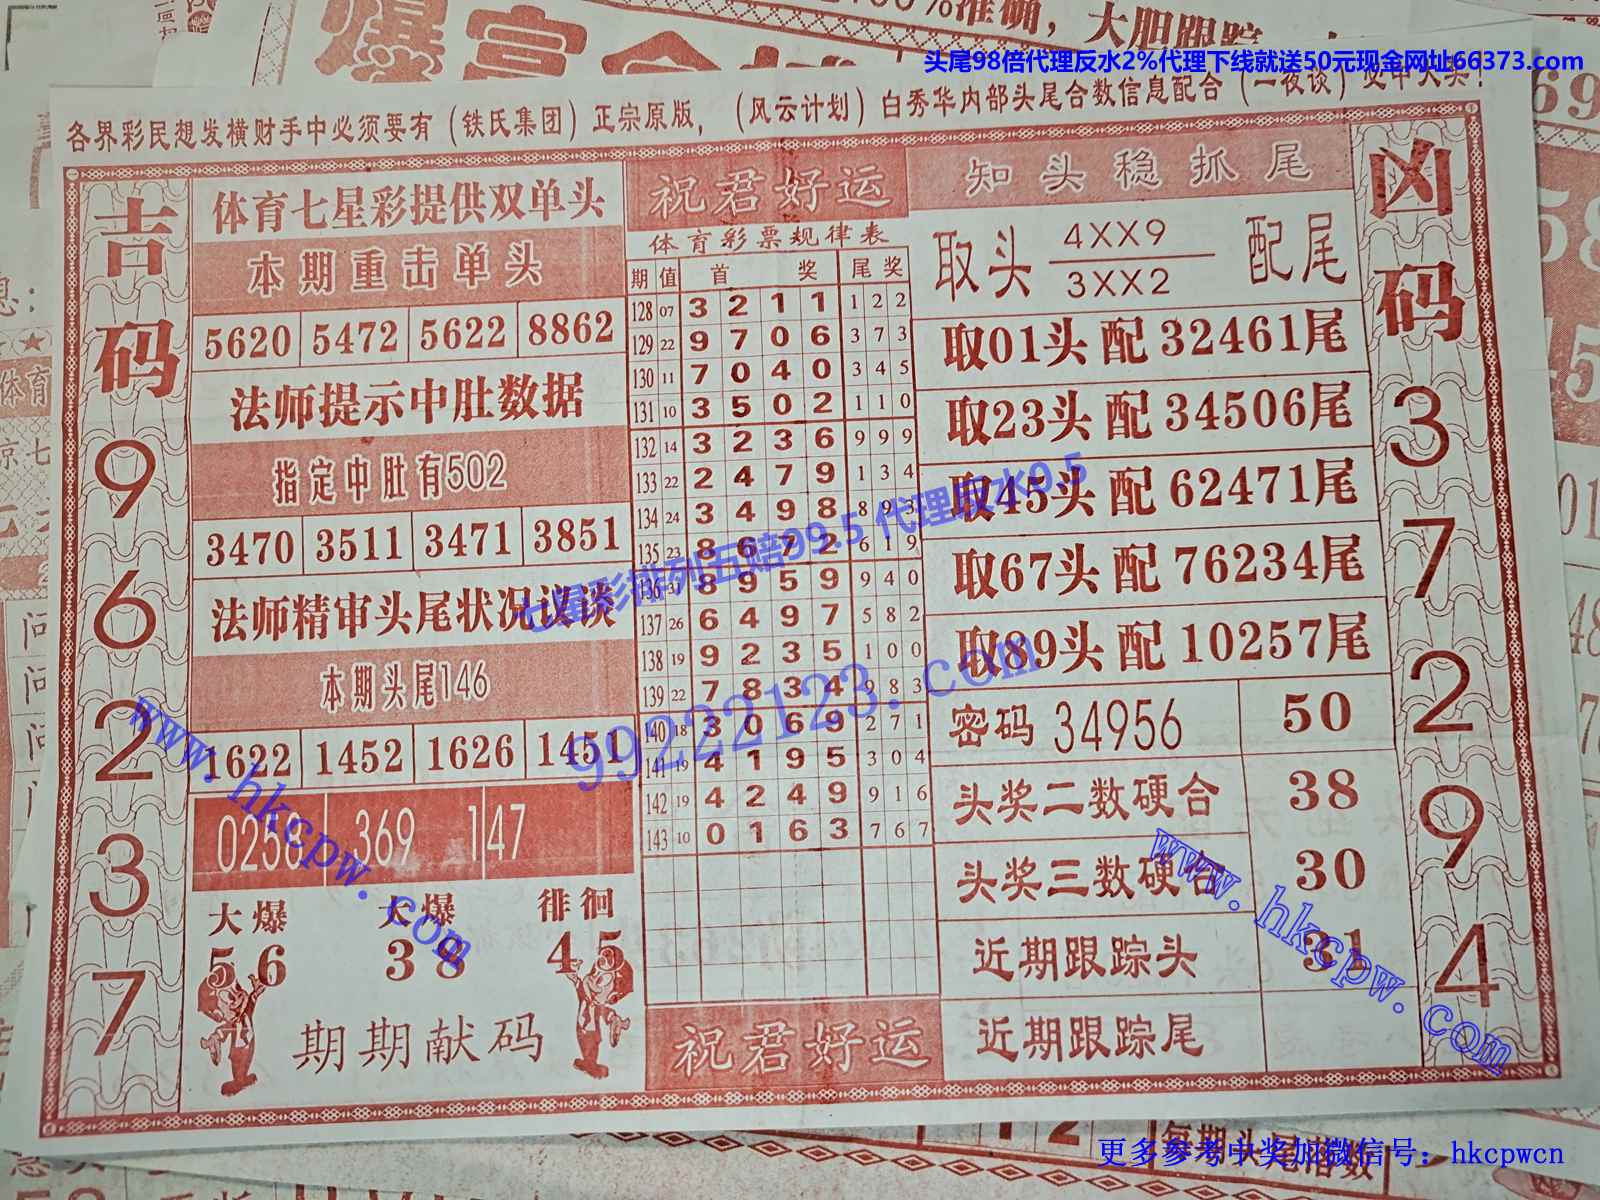 100%准确，大胆跟踪
头尾98倍代理反水2%代理下线就送50元现金网址66373.com
各界彩民想发横财手中必须要有（铁氏集团）正宗原版，（风云计划）白秀华内部头尾合数信息配合（一夜谈）
吉码
9
6
2
3
7
体育七星彩提供双单头
本期重击单头
5620 5472 5622 8862
法师提示中肚数据
指定中肚有502
3470 3511 3471 3851
法师精审头尾状况议谈
本期头尾146
1622 1452 1626 1451
0258 369 147
大爆 大爆 徘徊
56 38 45
期期献码
祝君好运
体育彩票规律表
期 值 首 奖 尾 奖
128 07 3 2 1 1 1 2 2
129 22 9 7 0 6 3 7 3
130 11 7 0 4 0 3 4 5
131 10 3 5 0 2 1 1 0
132 14 3 2 3 6 9 9 9
133 22 2 4 7 9 1 3 4
134 24 3 4 9 8 8 9 3
135 23 8 6 7 2 6 1 9
136 31 8 9 5 9 9 4 0
137 26 6 4 9 7 5 8 2
138 19 9 2 3 5 1 0 0
139 22 7 8 3 4 9 8 3
140 18 3 0 6 9 2 7 1
141 19 4 1 9 5 3 0 4
142 19 4 2 4 9 9 1 6
143 10 0 1 6 3 7 6 7
祝君好运
知头稳抓尾
取头 4XX9 配尾
3XX2
取01头 配 32461尾
取23头 配 34506尾
取45头 配 62471尾
取67头 配 76234尾
取89头 配 10257尾
密码 34956 50
头奖二数硬合 38
头奖三数硬合 30
近期跟踪头 31
近期跟踪尾
凶码
3
7
2
9
4
七星彩排列五赔99.5 代理反水0.5
99222123.com
www.hkcpw.com
www.hkcpw.com
每期头尾
更多参考中奖加微信号：hkcpwcn